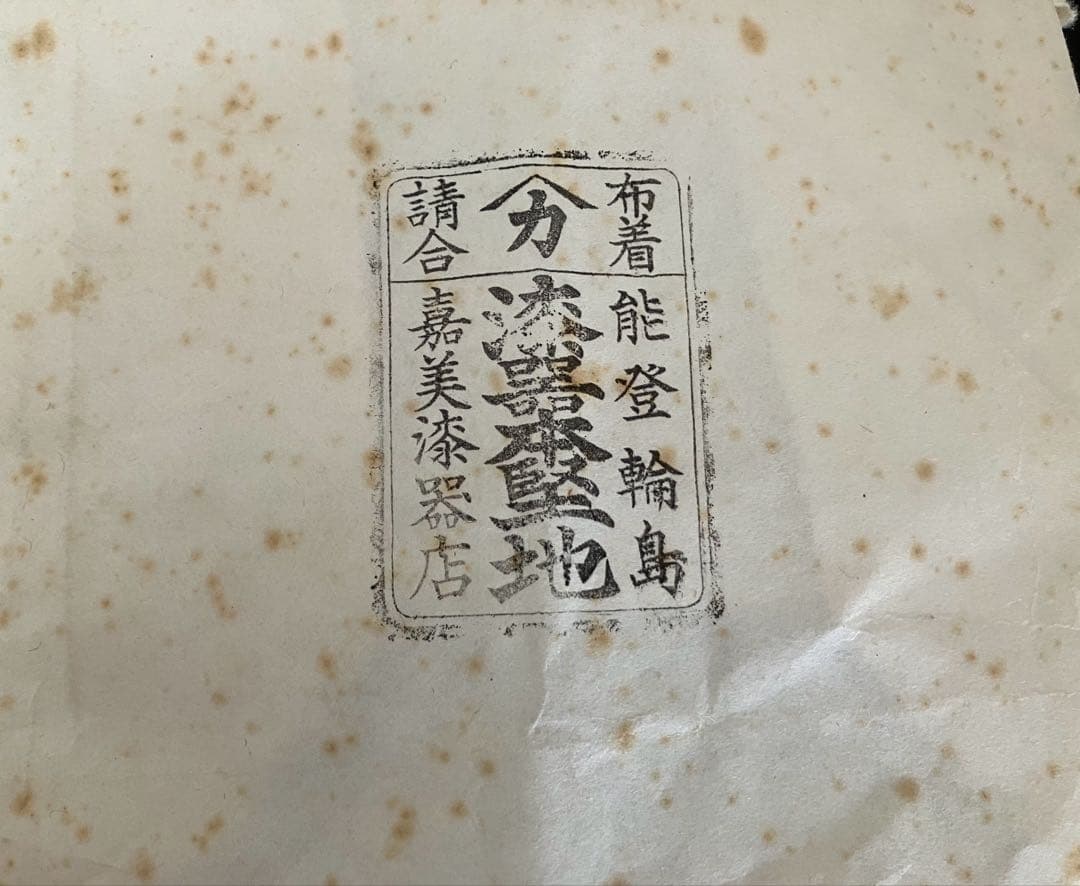 布着
カ
請合
能登輪島
漆器本堅地
嘉美漆器店